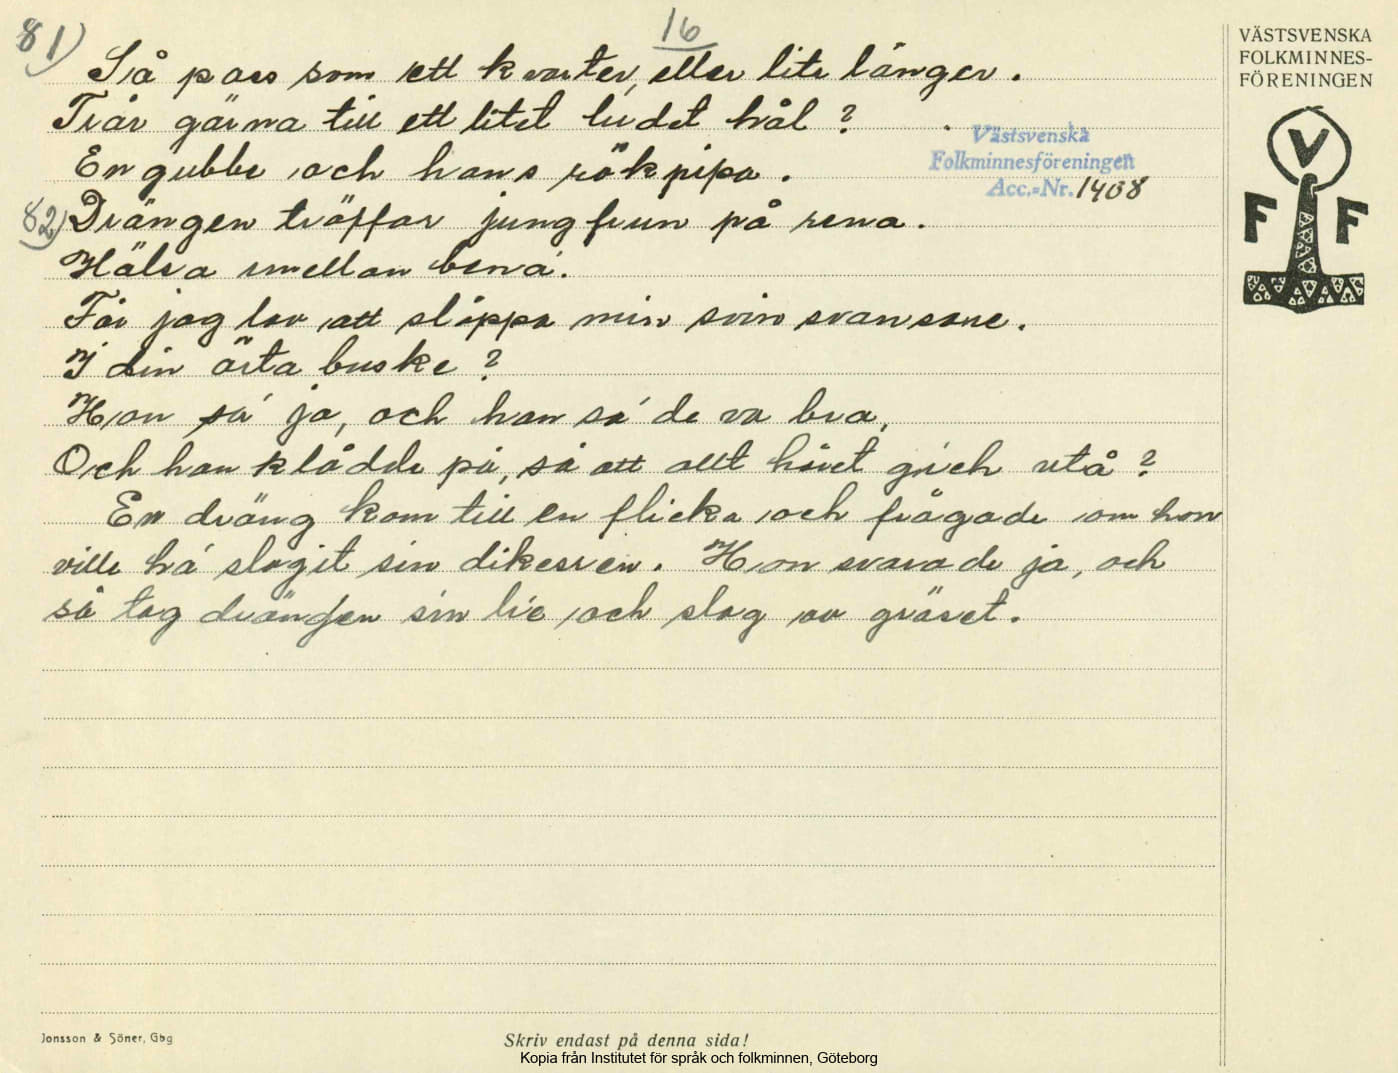 16
81) Så pass som ett kvarter, eller lite länger.
Trår gärna till ett litet ludet hål?
En gubbe och hans rökpipa.
82) Drängen träffar jungfrun på rena.
Hälsa emellan bena.
Får jag lov att släppa min svin svansane.
I din ärta buske?
Hon sa' ja, och han sa' de va bra,
Och han klådde på, så att allt håret gich utå?
En dräng kom till en flicka och frågade om hon
ville ha' slagit sin dikesren. Hon svarade ja, och
så tog drängen sin lie och slog av gräset.
Västsvenska
Folkminnesföreningen
Acc.-Nr. 1408
VÄSTSVENSKA
FOLKMINNES-
FÖRENINGEN
V
F F
Jonsson & Söner, Gbg
Skriv endast på denna sida!
Kopia från Institutet för språk och folkminnen, Göteborg